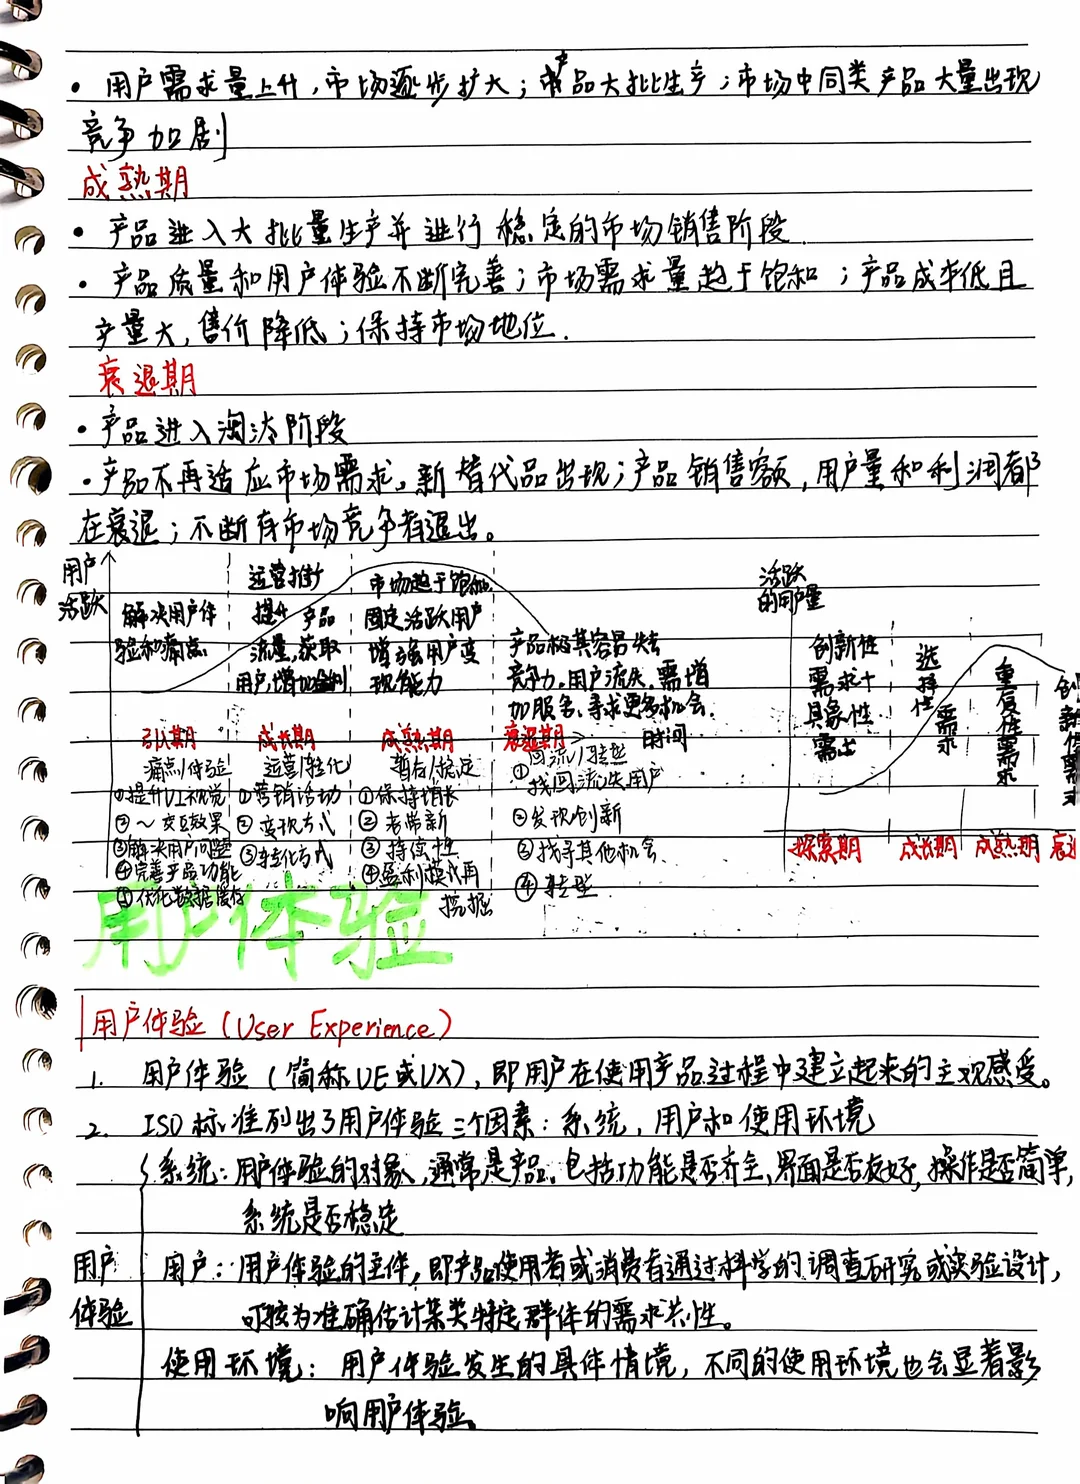 · 用户需求量上升，市场逐步扩大；产品大批生产；市场中同类产品大量出现
竞争加剧
成熟期
· 产品进入大批量生产并进行稳定的市场销售阶段.
· 产品质量和用户体验不断完善；市场需求量趋于饱和；产品成本低且
产量大，售价降低；保持市场地位.
衰退期
· 产品进入淘汰阶段
· 产品不再适应市场需求，新替代品出现；产品销售额，用户量和利润都
在衰退；不断有市场竞争者退出。
用户
活跃
解决用户体
验和痛点
运营推广
提升产品
流量,获取
用户,增加盈利
市场趋于饱和.
固定活跃用户
增强用户变
现能力
产品极其容易失去
竞争力,用户流失,需增
加服务,寻求更多机会.
时间
引入期
成长期
成熟期
衰退期
痛点/体验
①提升UI视觉
②～交互效果
③解决用户问题
④完善产品功能
⑤优化数据缓存
运营/转化
①营销活动
②变现方式
③转化方式
暂存/稳定
①保持增长
②老带新
③持续性
④盈利模式再
挖掘
回流/转型
①找回流失用户
②发现创新
③找寻其他机会
④转型
活跃
的用户量
创新性
需求+
具象性
需求
选择性
需求
重复性需求
探索期
成长期
成熟期
用户体验
用户体验（User Experience）
1. 用户体验（简称UE或UX），即用户在使用产品过程中建立起来的主观感受。
2. ISO标准列出了用户体验三个因素：系统，用户和使用环境
用户
体验
系统：用户体验的对象，通常是产品。包括功能是否齐全、界面是否友好，操作是否简单，
系统是否稳定
用户：用户体验的主体，即产品使用者或消费者通过科学的调查研究或实验设计，
可较为准确估计某类特定群体的需求共性。
使用环境：用户体验发生的具体情境，不同的使用环境也会显著影
响用户体验。